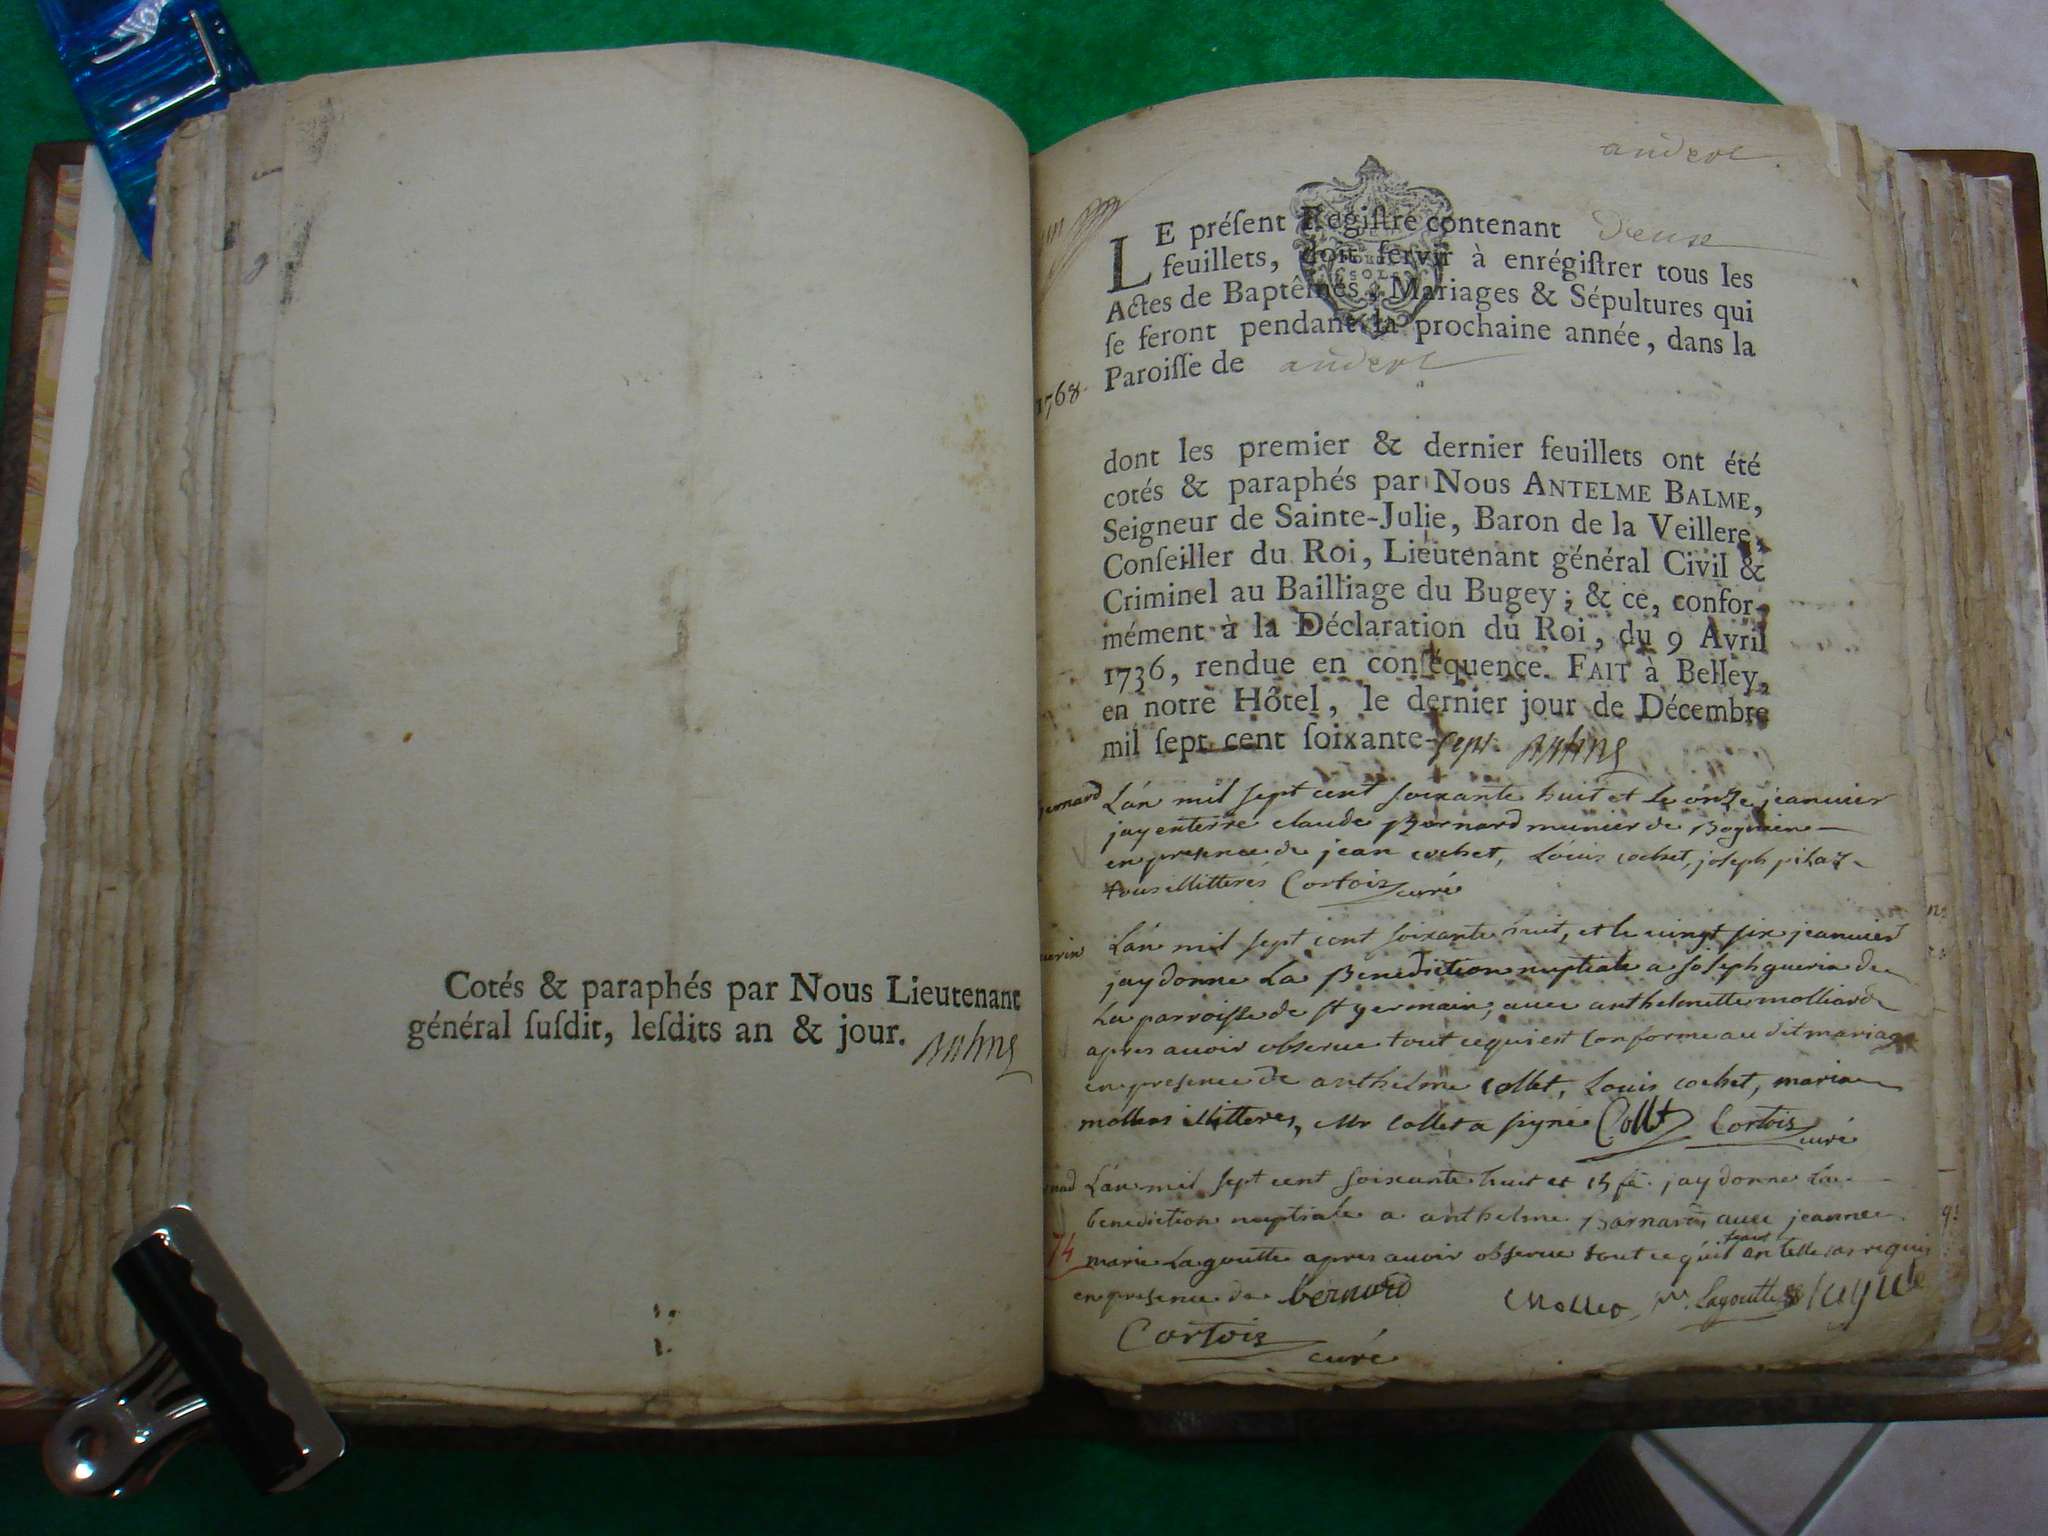 Cotés & paraphés par Nous Lieutenant
général ſuſdit, leſdits an & jour.
andert
LE préſent Regiſtre contenant deux
feuillets, doit ſervir à enrégiſtrer tous les
Actes de Baptêmes, Mariages & Sépultures qui
ſe feront pendant la prochaine année, dans la
Paroiſſe de andert
1768.
dont les premier & dernier feuillets ont été
cotés & paraphés par Nous ANTELME BALME,
Seigneur de Sainte-Julie, Baron de la Veillere,
Conſeiller du Roi, Lieutenant général Civil &
Criminel au Bailliage du Bugey; & ce, confor-
mément à la Déclaration du Roi, du 9 Avril
1736, rendue en conſéquence. FAIT à Belley,
en notre Hôtel, le dernier jour de Décembre
mil ſept cent ſoixante-sept.
Bernard L'an mil sept cent soixante huit et le onze jeanvier
jay enterre claude Bernard munier de
en presence de jean cochet, Louis cochet, joseph pilaz
tous illitteres Cortois curé
guerin L'an mil sept cent soixante huit, et le vingt six jeanvier
jay donne La Benediction nuptiale a joseph guerin de
La parroisse de st germain, avec anthelmette molliard
apres avoir observe tout cequi est conforme au dit mariage
en presence de anthelme collet, Louis cochet, marin
illitteres, Mr collet a signe Collet Cortois
curé
L'an mil sept cent soixante huit et 15 fe. jay donne La
benediction nuptiale a anthelme Barnard, avec jeanne
74 marie Lagoutte apres avoir observe tout ce quil en telle cas requis
en presence de bernard Lagoutte
Cortois
curé